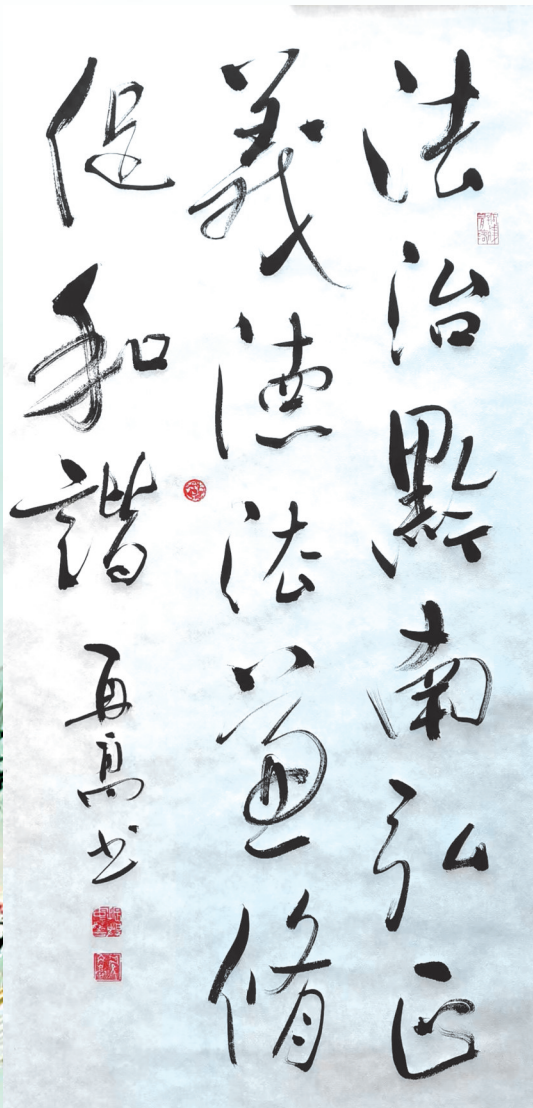 法治黔南弘正
義德法兼修
促和諧
再高书